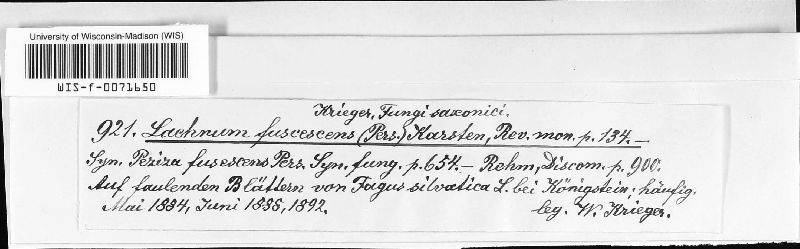 University of Wisconsin-Madison (WIS)
WIS-f-0071650
Krieger, Fungi saxonici.
921. Lachnum fuscescens (Pers.) Karsten, Rev. mon. p. 134.—
Syn. Peziza fusescens Pers. Syn. fung. p. 654.— Rehm, Discom. p. 900.
Auf faulenden Blättern von Fagus silvatica L. bei Königstein, häufig.
Mai 1884, Juni 1885, 1892. leg. W. Krieger.